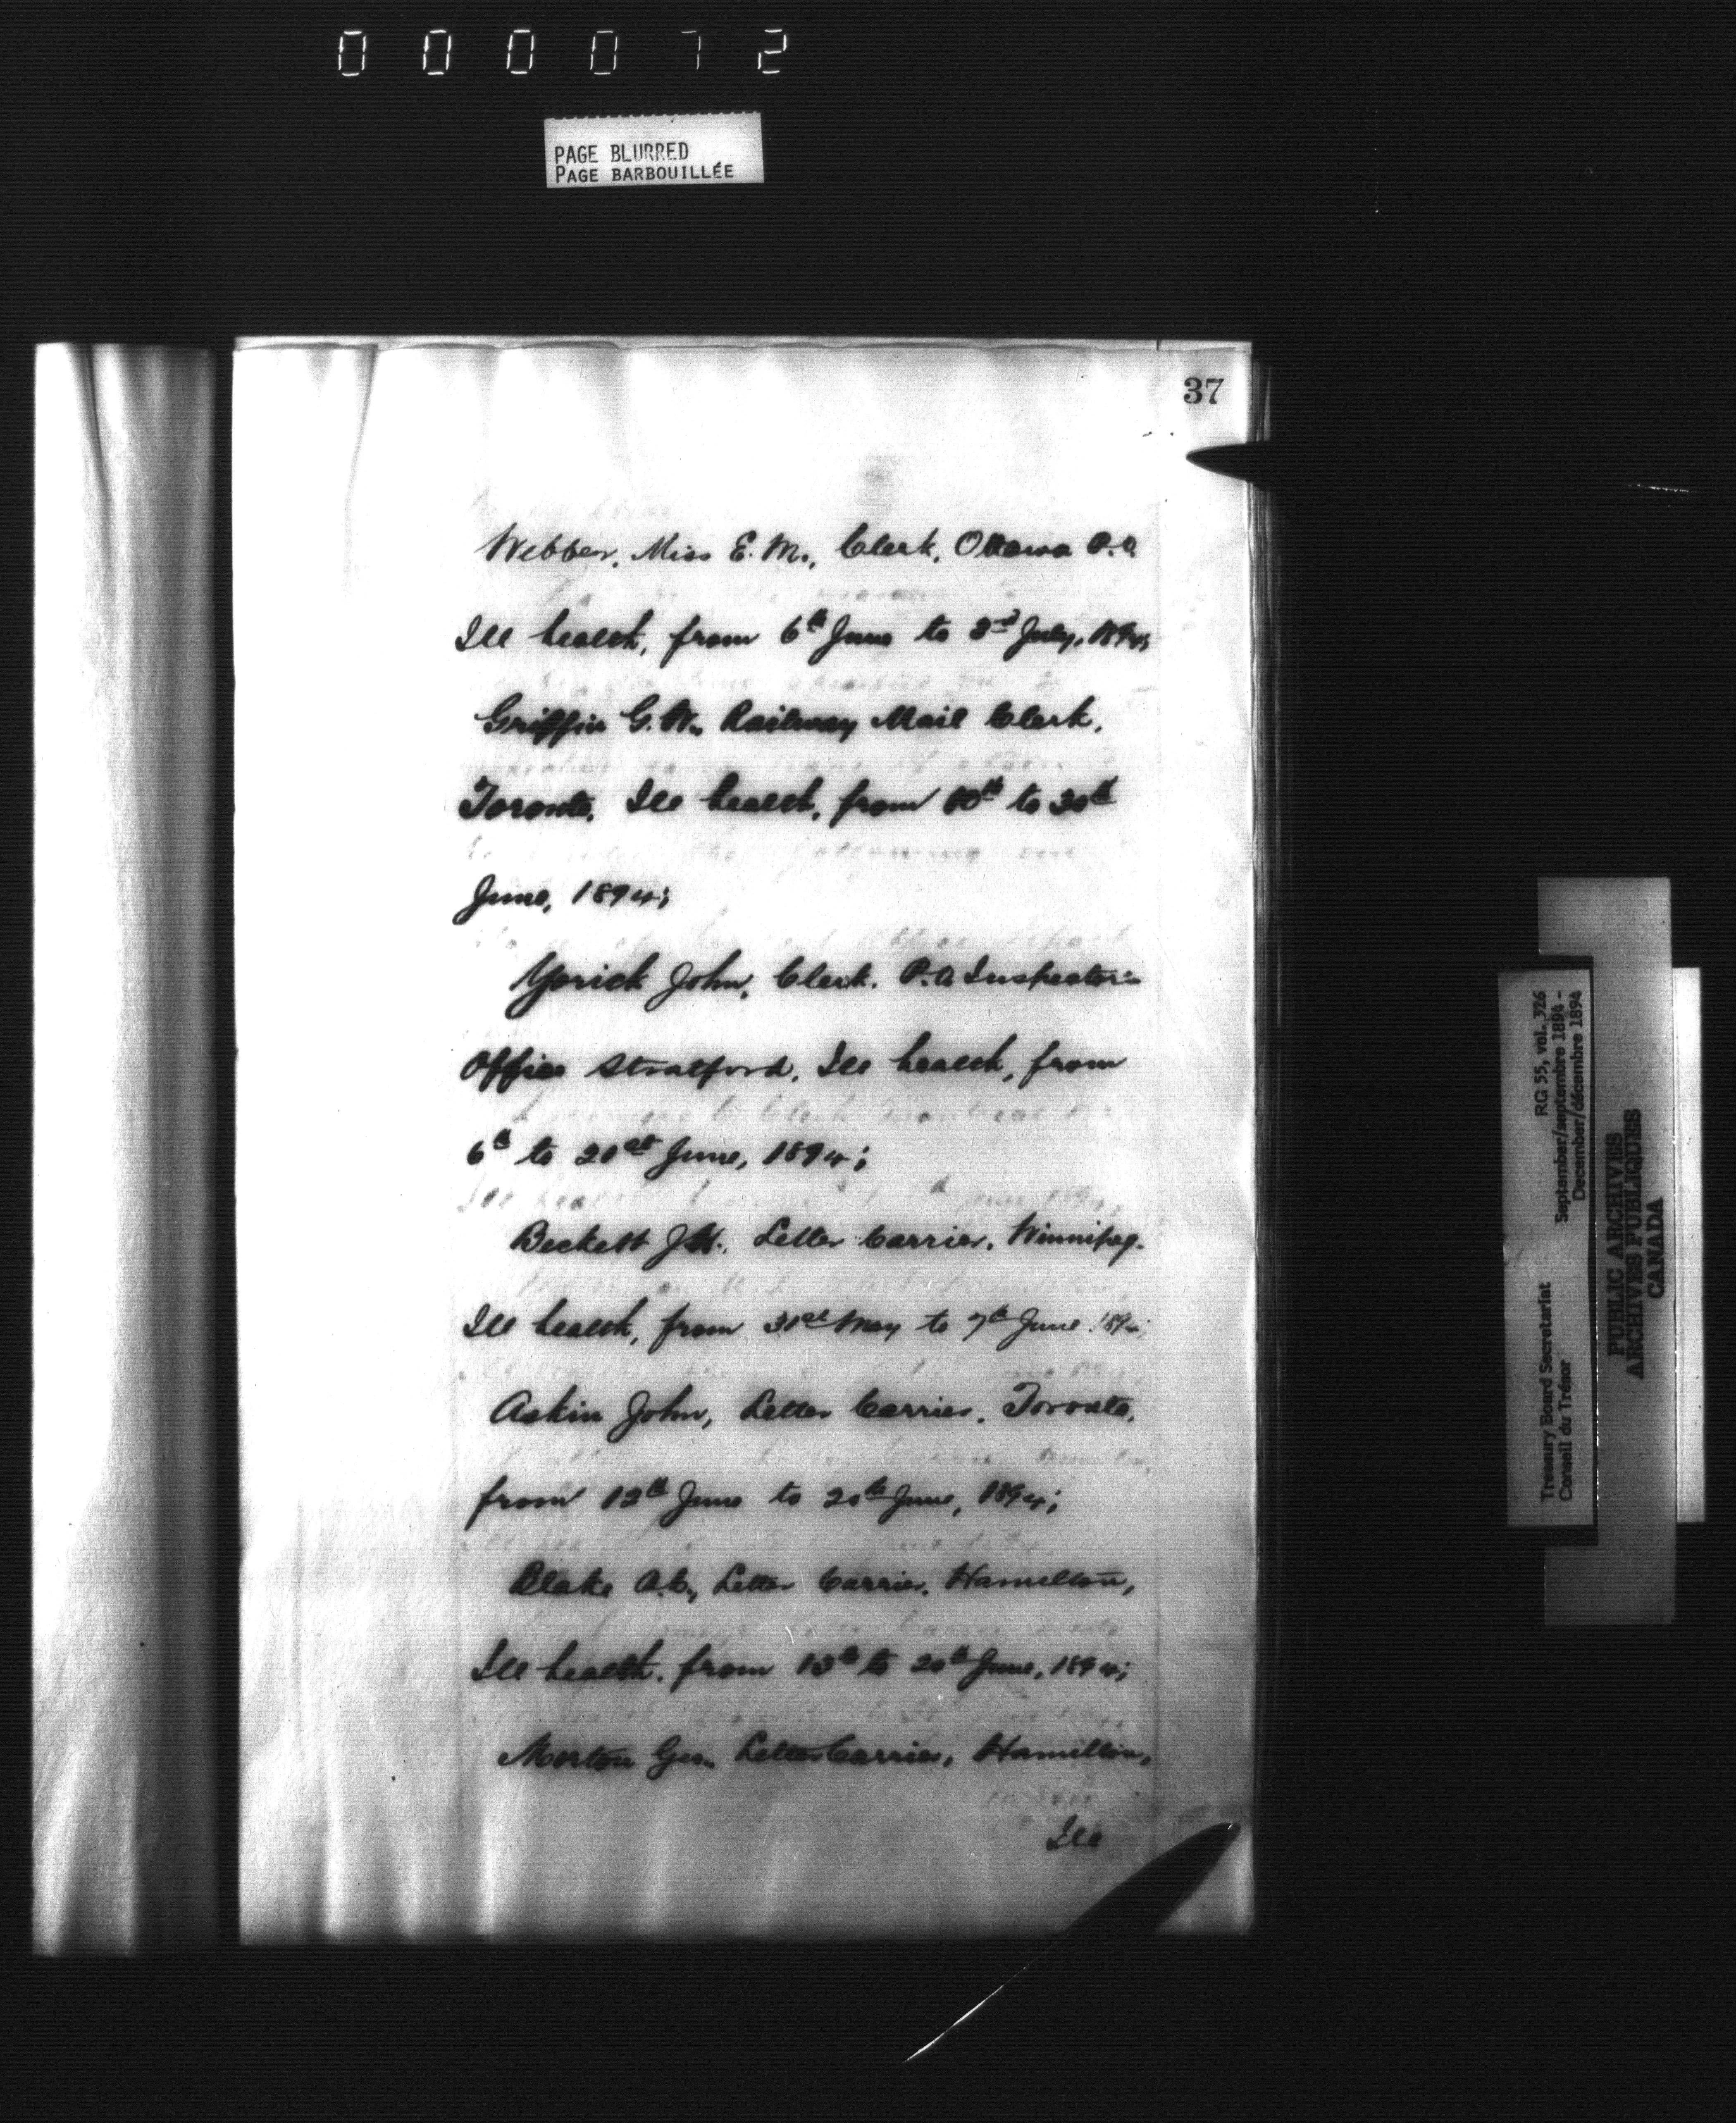 000072
PAGE BLURRED
PAGE BARBOUILLÉE
37
Webber, Miss E. M., Clerk, Ottawa P.O.
Ill health, from 6th June to 3rd July, 1894;
Griffin G. W., Railway Mail Clerk,
Toronto, Ill health, from 10th to 30th
June, 1894;
Yorick John, Clerk. P.O. Inspector's
Office Stratford, Ill health, from
6th to 21st June, 1894;
Beckett J. Letter Carrier, Winnipeg.
Ill health, from 31st May to 7th June 1894;
Askin John, Letter Carrier, Toronto,
from 12th June to 20th June, 1894;
Blake A.C., Letter Carrier, Hamilton,
Ill health, from 13th to 20th June, 1894;
Morton Geo. Letter Carrier, Hamilton,
Ill
Treasury Board Secretariat RG 55, vol. 326
Conseil du Trésor September/septembre 1894 -
December/décembre 1894
PUBLIC ARCHIVES
ARCHIVES PUBLIQUES
CANADA